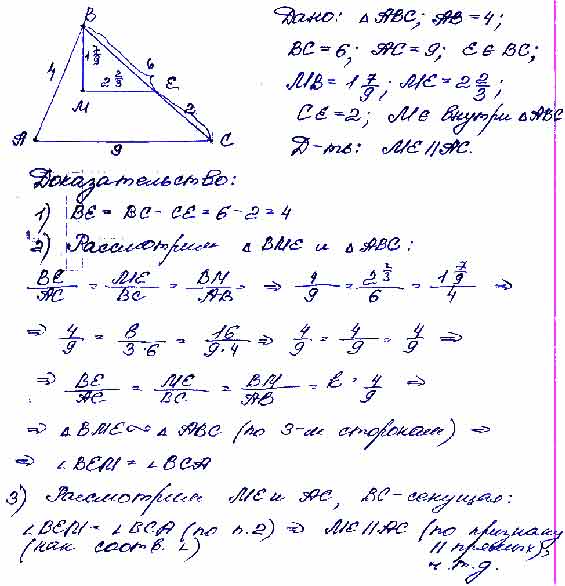 Дано: △ABC; AB=4;
BC=6; AC=9; E∈BC;
MB=1 7/9; ME=2 2/3;
CE=2; M∈ внутри △ABC
Д-ть: ME||AC.
B
4
1 7/9
6
2 2/3
E
M
2
A
9
C
Доказательство:
1) BE = BC - CE = 6 - 2 = 4
2) Рассмотрим △BME и △ABC:
BE/AC = ME/BC = BM/AB ⇒ 4/9 = 2 2/3/6 = 1 7/9/4 ⇒
⇒ 4/9 = 8/3·6 = 16/9·4 ⇒ 4/9 = 4/9 = 4/9 ⇒
⇒ BE/AC = ME/BC = BM/AB = k = 4/9 ⇒
⇒ △BME ∾ △ABC (по 3-м сторонам) ⇒
⇒ ∠BEM = ∠BCA
3) Рассмотрим ME и AC, BC-секущая:
∠BEM = ∠BCA (по п.2) ⇒ ME||AC (по признаку
(как соотв. ∠) || прямых),
ч.т.д.